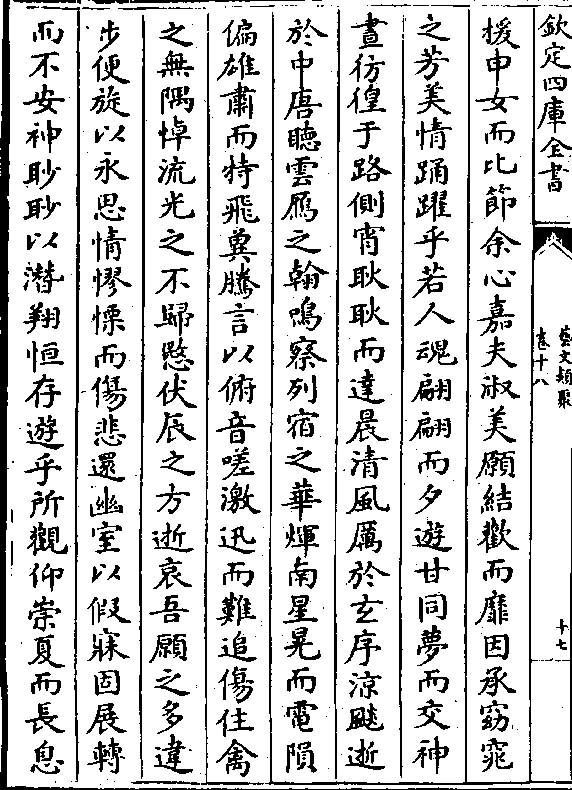 欽定四庫全書
藝文類聚
卷十八
十七
援申女而比節余心嘉夫淑美願結歡而靡因承窈窕
之芳美情踊躍乎若人魂翩翩而夕遊甘同夢而交神
晝彷徨于路側宵耿耿而達晨清風厲於玄序涼飈逝
於中唐聽雲鴈之翰鳴察列宿之華煇南星晃而電隕
偏雄肅而特飛冀騰言以俯音嗟激迅而難追傷住禽
之無隅悼流光之不歸愍伏辰之方逝哀吾願之多違
步便旋以永思情憀慄而傷悲還幽室以假寐固展轉
而不安神眇眇以潛翔恒存遊乎所觀仰崇夏而長息